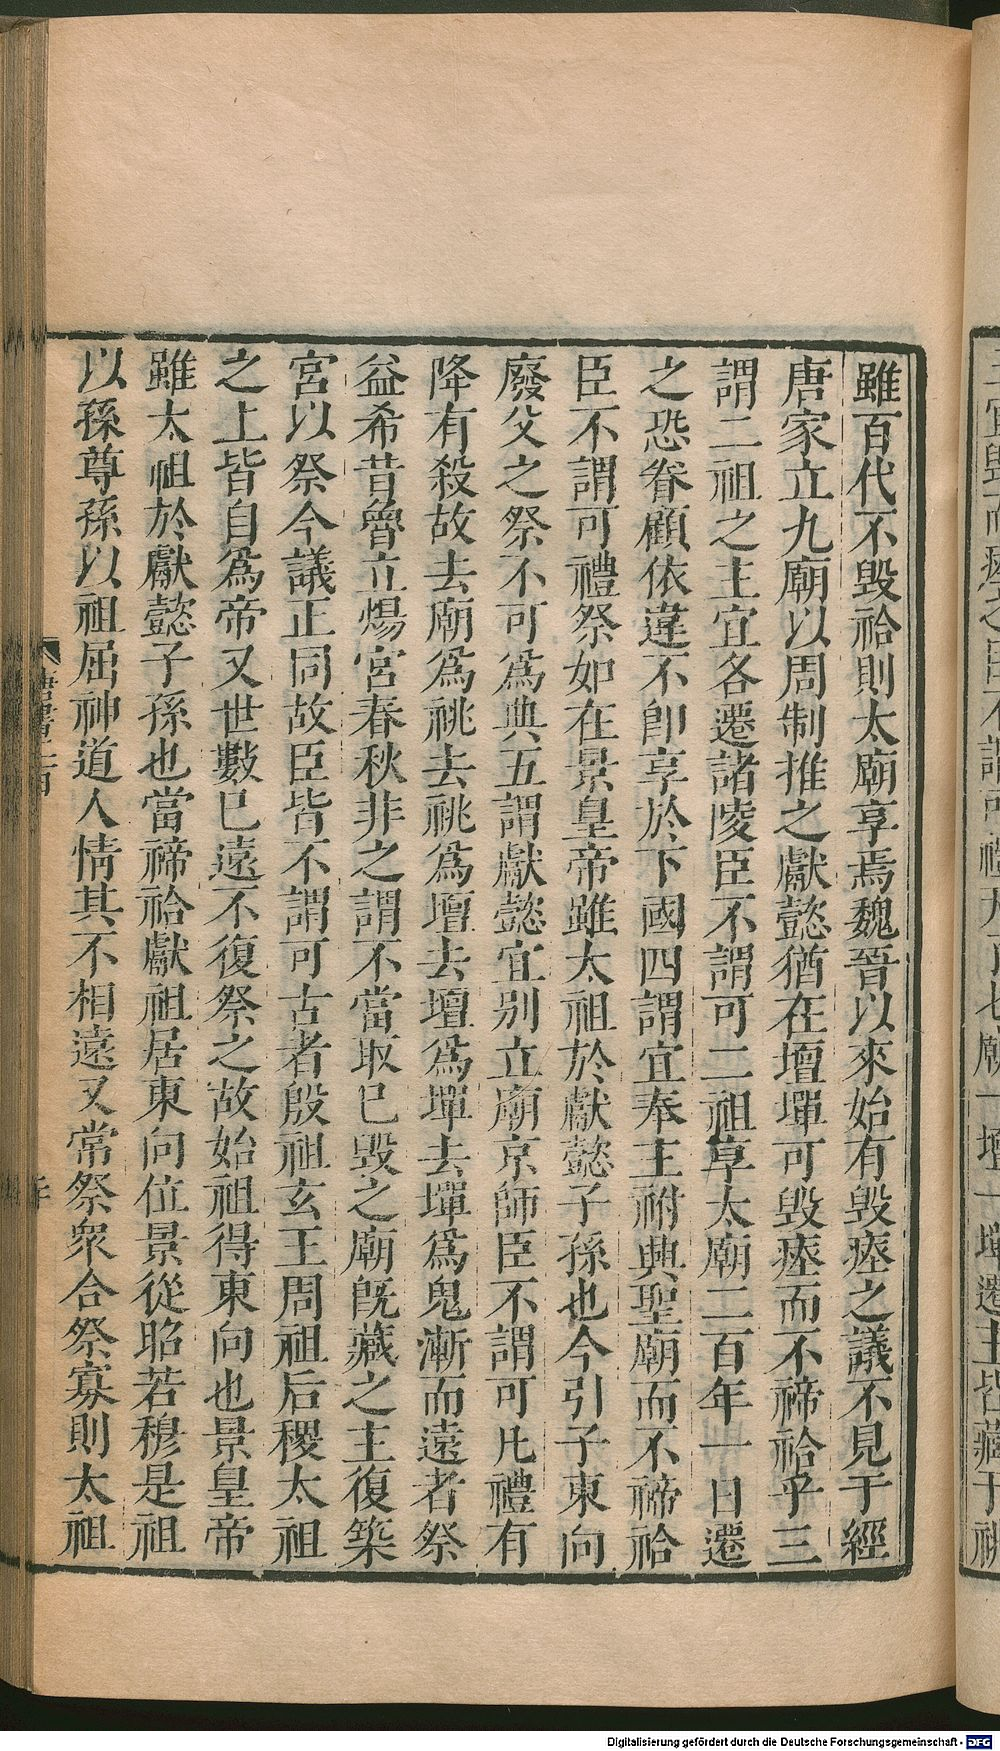 雖百代不毀祫則太廟享焉魏晉以來始有毀瘞之議不見于經
唐家立九廟以周制推之獻懿猶在壇墠可毀瘞而不禘祫乎三
謂二祖之主宜各遷諸陵臣不謂可二祖享太廟二百年一日遷
之恐眷顧依違不卽享於下國四謂宜奉主祔興聖廟而不禘祫
臣不謂可禮祭如在景皇帝雖太祖於獻懿子孫也今引子東向
廢父之祭不可為典五謂獻懿宜別立廟京師臣不謂可凡禮有
降有殺故去廟為祧去祧為壇去壇為墠去墠為鬼漸而遠者祭
益希昔魯立煬宮春秋非之謂不當取已毀之廟旣藏之主復築
宮以祭今議正同故臣皆不謂可古者殷祖玄王周祖后稷太祖
之上皆自為帝又世數已遠不復祭之故始祖得東向也景皇帝
雖太祖於獻懿子孫也當禘祫獻祖居東向位景從昭若穆是祖
以孫尊孫以祖屈神道人情其不相遠又常祭眾合祭寡則太祖
Digitalisierung gefördert durch die Deutsche Forschungsgemeinschaft - DFG